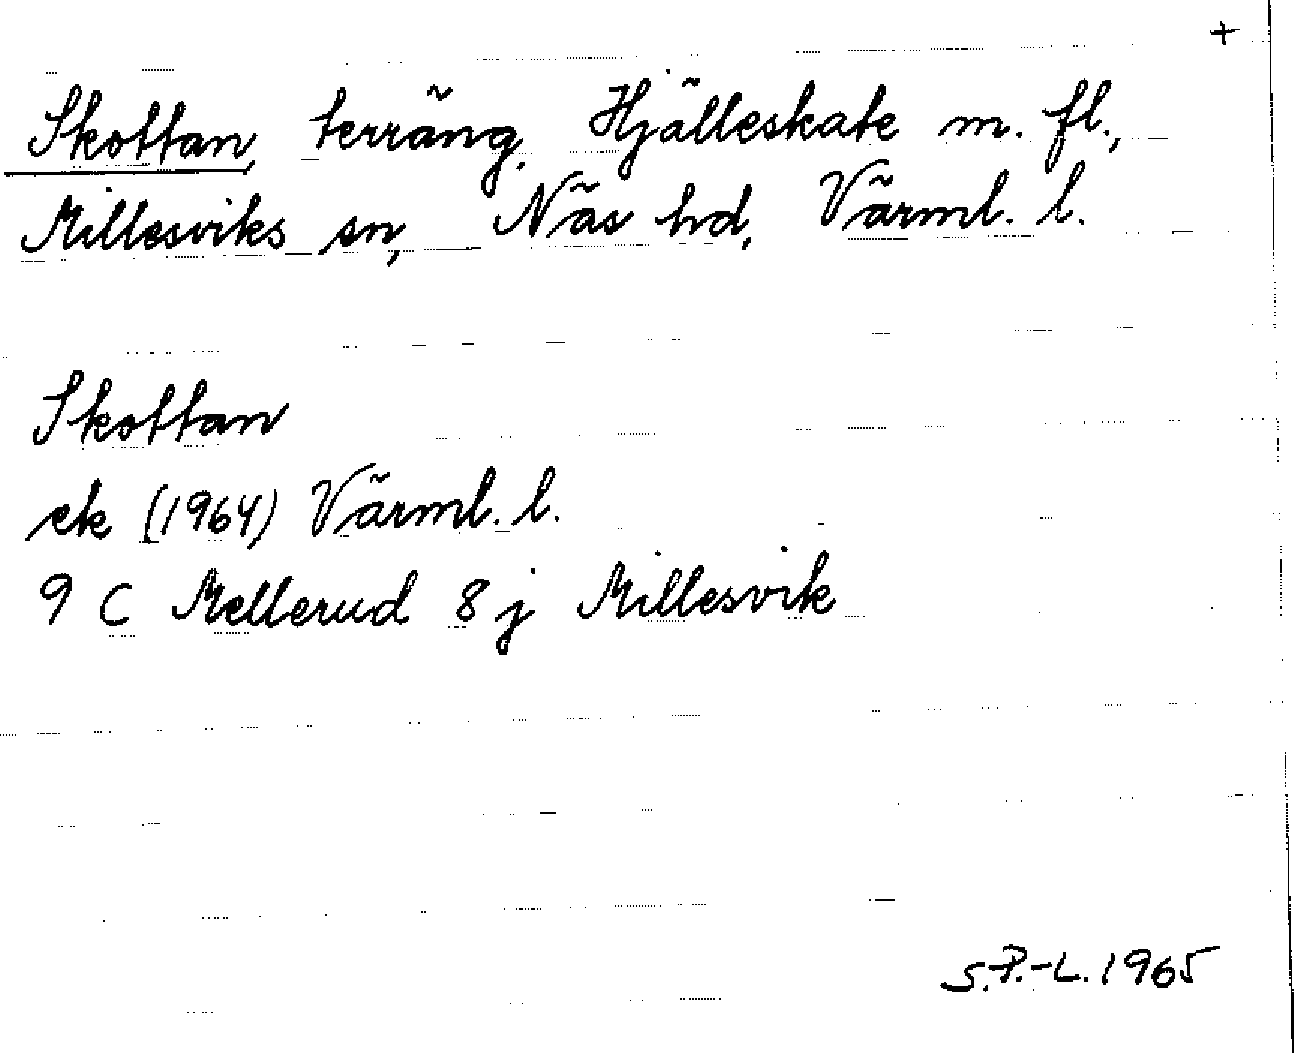 +
Skottan, terräng, Hjälleskate m. fl.,
Millesviks sn, Näs hd, Värml. l.
Skottan
ek (1964) Värml. l.
9 C Mellerud 8 j Millesvik
S.P.-L. 1965